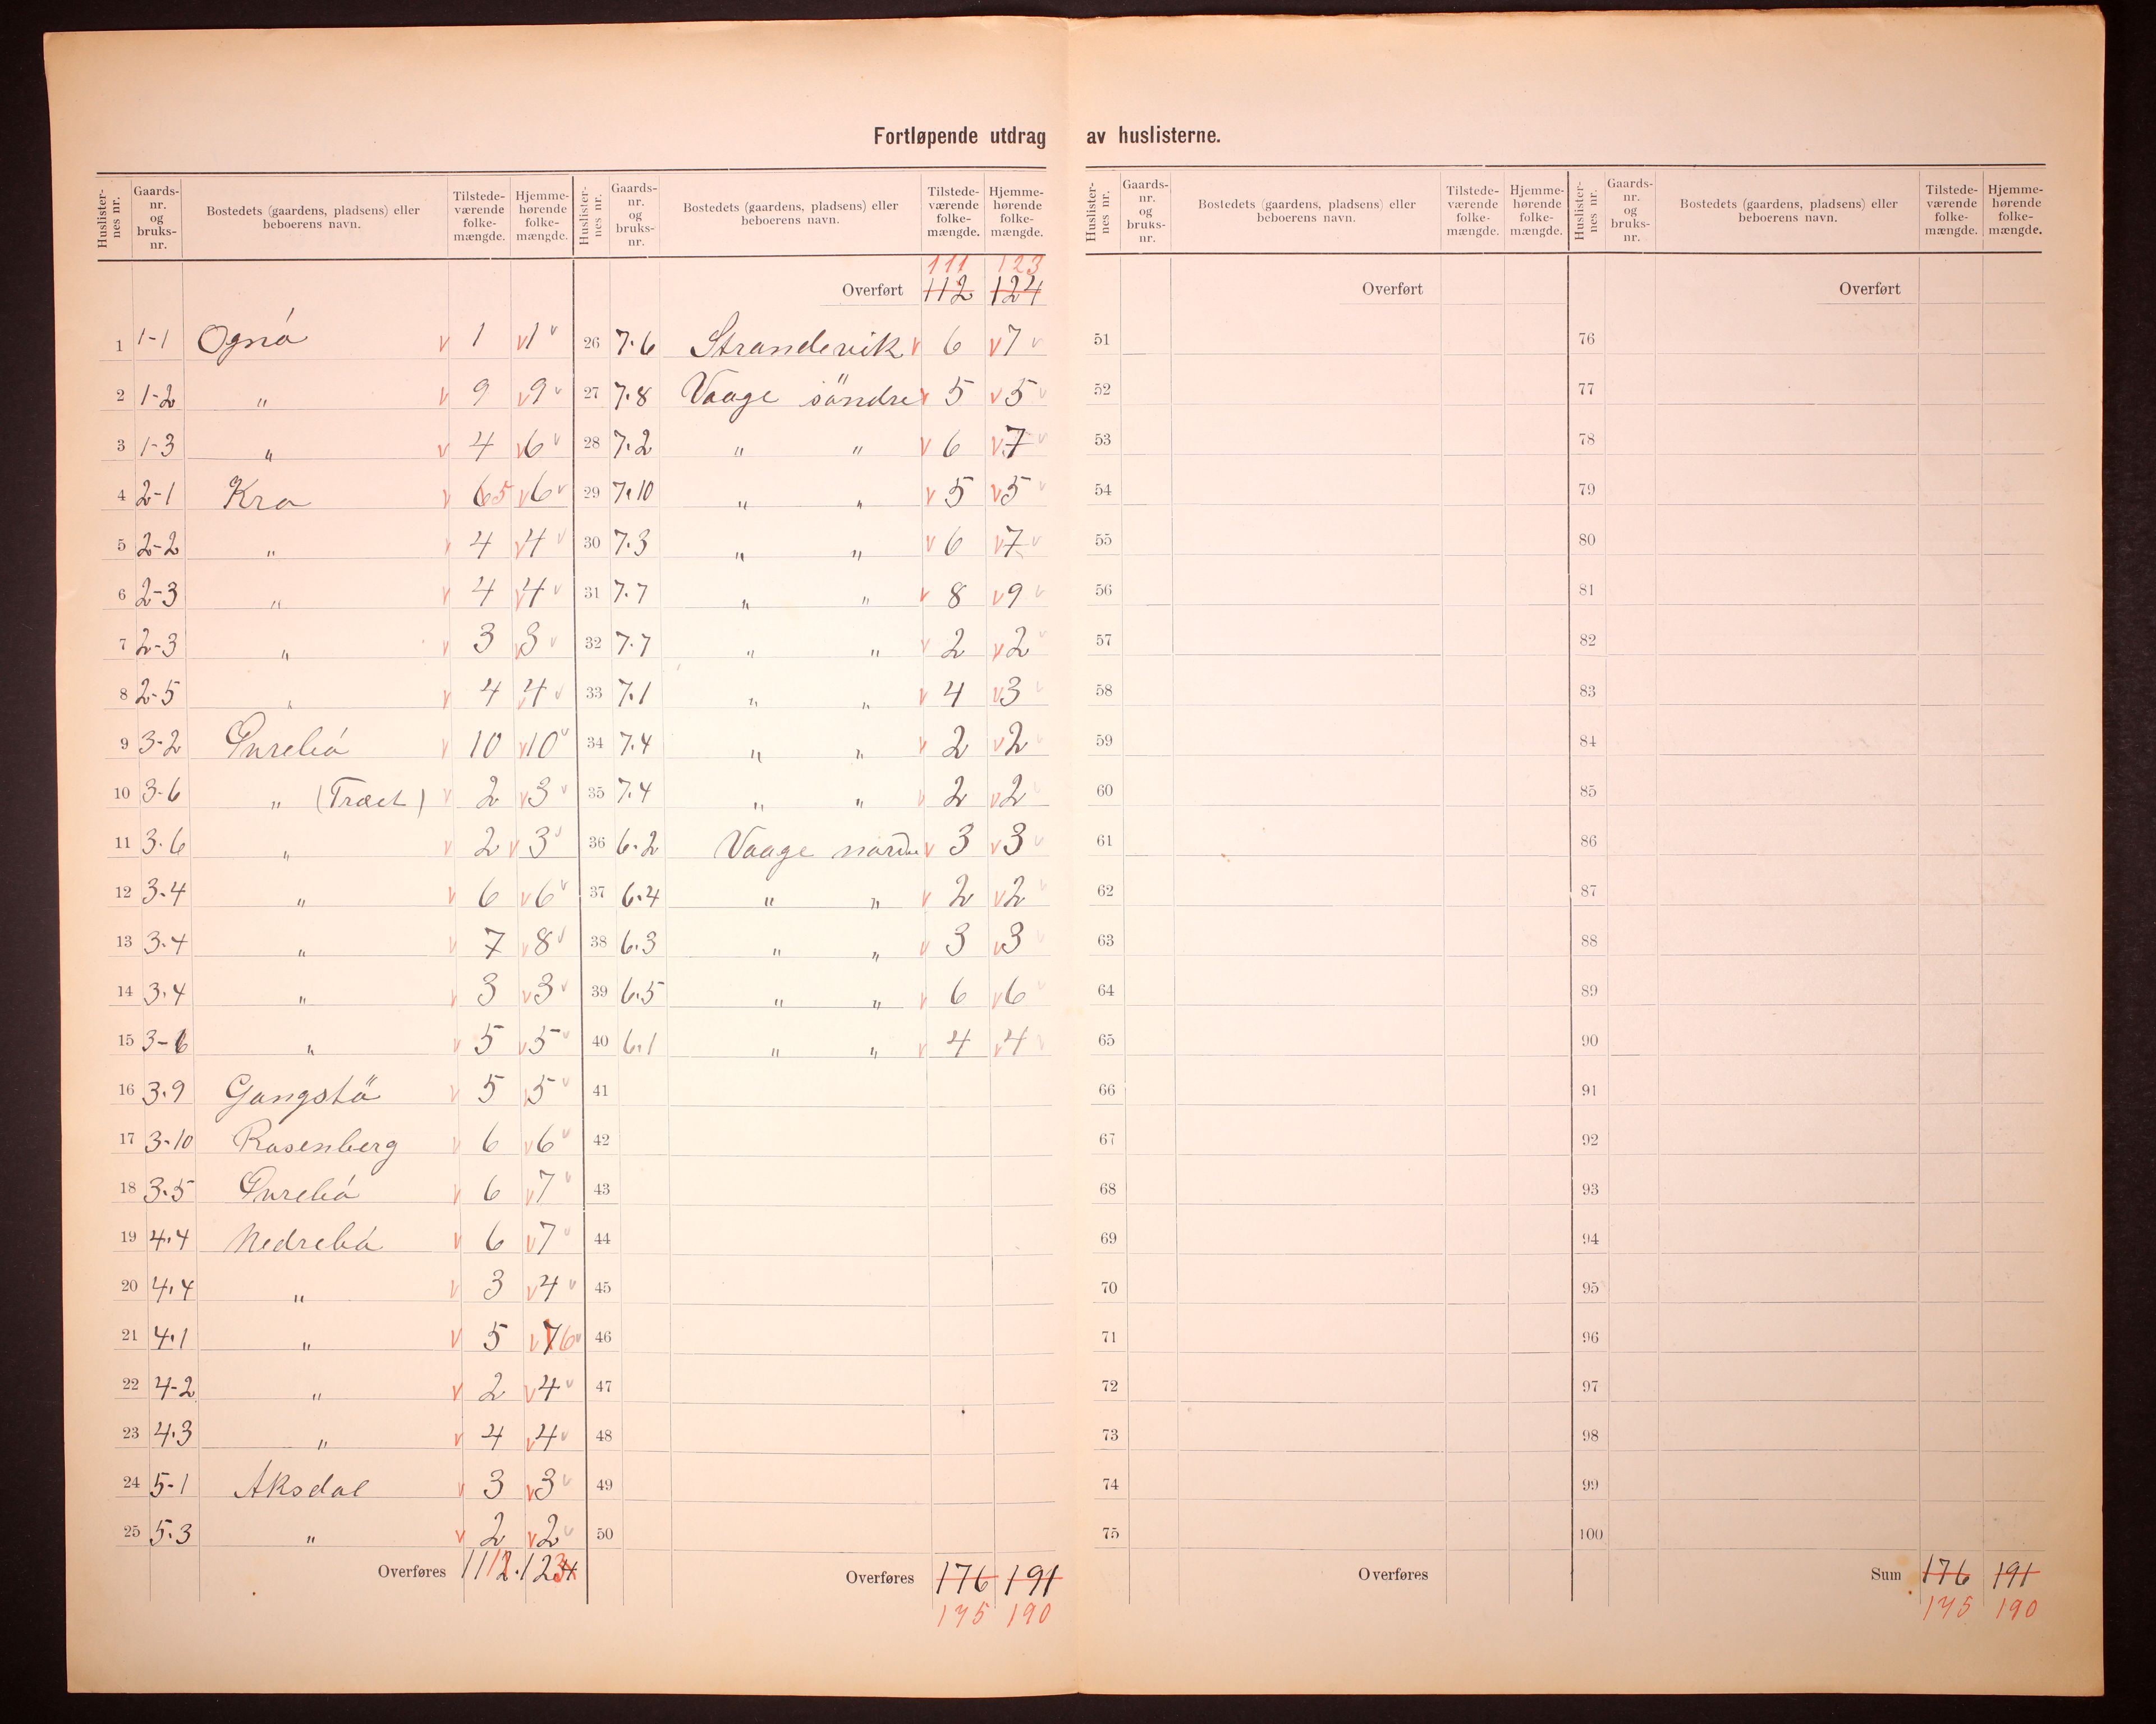 Fortløpende utdrag av huslisterne.
Huslister-nes nr. Gaards-nr. og bruks-nr. Bostedets (gaardens, pladsens) eller beboerens navn. Tilstede-værende folke-mængde. Hjemme-hørende folke-mængde.
1 1-1 Ognö v 1 v 1 v
2 1-2 " v 9 v 9 v
3 1-3 " v 4 v 6 v
4 2-1 Kro v 6 5 v 6 v
5 2-2 " v 4 v 4 v
6 2-3 " v 4 v 4 v
7 2-3 " v 3 v 3 v
8 2-5 " v 4 v 4 v
9 3-2 Gurebö v 10 v 10 v
10 3-6 " (Træet) v 2 v 3 v
11 3.6 " v 2 v 3 v
12 3.4 " v 6 v 6 v
13 3.4 " v 7 v 8 v
14 3.4 " v 3 v 3 v
15 3-6 " v 5 v 5 v
16 3.9 Gangstö v 5 v 5 v
17 3-10 Rosenberg v 6 v 6 v
18 3.5 Gurebö v 6 v 7 v
19 4.4 Nedrebö v 6 v 7 v
20 4.4 " v 3 v 4 v
21 4.1 " v 5 v 7 6 v
22 4-2 " v 2 v 4 v
23 4.3 " v 4 v 4 v
24 5-1 Aksdal v 3 v 3 v
25 5.3 " v 2 v 2 v
Overføres 112 1 124 3
Huslister-nes nr. Gaards-nr. og bruks-nr. Bostedets (gaardens, pladsens) eller beboerens navn. Tilstede-værende folke-mængde. Hjemme-hørende folke-mængde.
111 123
Overført 112 124
26 7.6 Strandevik v 6 v 7 v
27 7.8 Vaage söndre v 5 v 5 v
28 7.2 " " v 6 v 7 v
29 7.10 " " v 5 v 5 v
30 7.3 " " v 6 v 7 v
31 7.7 " " v 8 v 9 v
32 7.7 " " v 2 v 2 v
33 7.1 " " v 4 v 3 v
34 7.4 " " v 2 v 2 v
35 7.4 " " v 2 v 2 v
36 6.2 Vaage nordre v 3 v 3 v
37 6.4 " " v 2 v 2 v
38 6.3 " " v 3 v 3 v
39 6.5 " " v 6 v 6 v
40 6.1 " " v 4 v 4 v
41
42
43
44
45
46
47
48
49
50
Overføres 176 191
175 190
Huslister-nes nr. Gaards-nr. og bruks-nr. Bostedets (gaardens, pladsens) eller beboerens navn. Tilstede-værende folke-mængde. Hjemme-hørende folke-mængde.
Overført
51
52
53
54
55
56
57
58
59
60
61
62
63
64
65
66
67
68
69
70
71
72
73
74
75
Overføres
Huslister-nes nr. Gaards-nr. og bruks-nr. Bostedets (gaardens, pladsens) eller beboerens navn. Tilstede-værende folke-mængde. Hjemme-hørende folke-mængde.
Overført
76
77
78
79
80
81
82
83
84
85
86
87
88
89
90
91
92
93
94
95
96
97
98
99
100
Sum 176 191
175 190